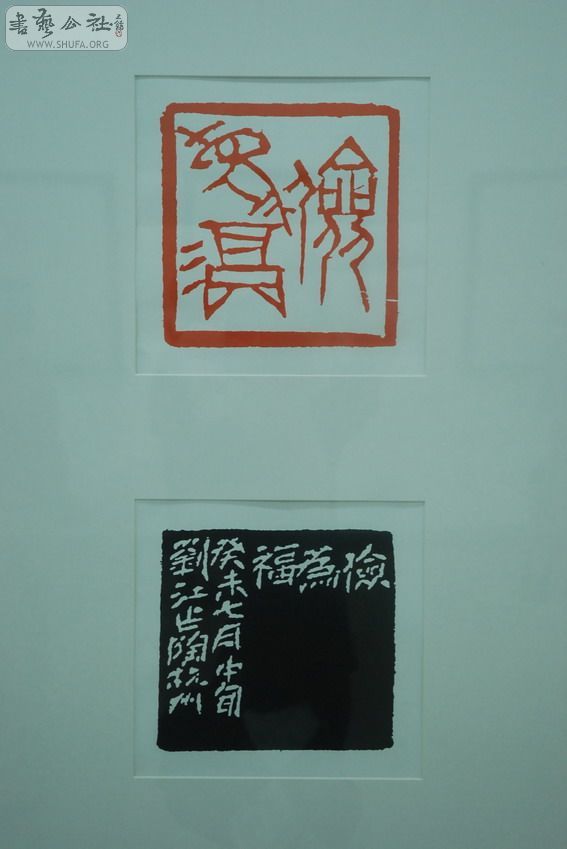 書藝公社
WWW.SHUFA.ORG
儉
為福
儉為福
癸未七月中旬
劉江作於杭州